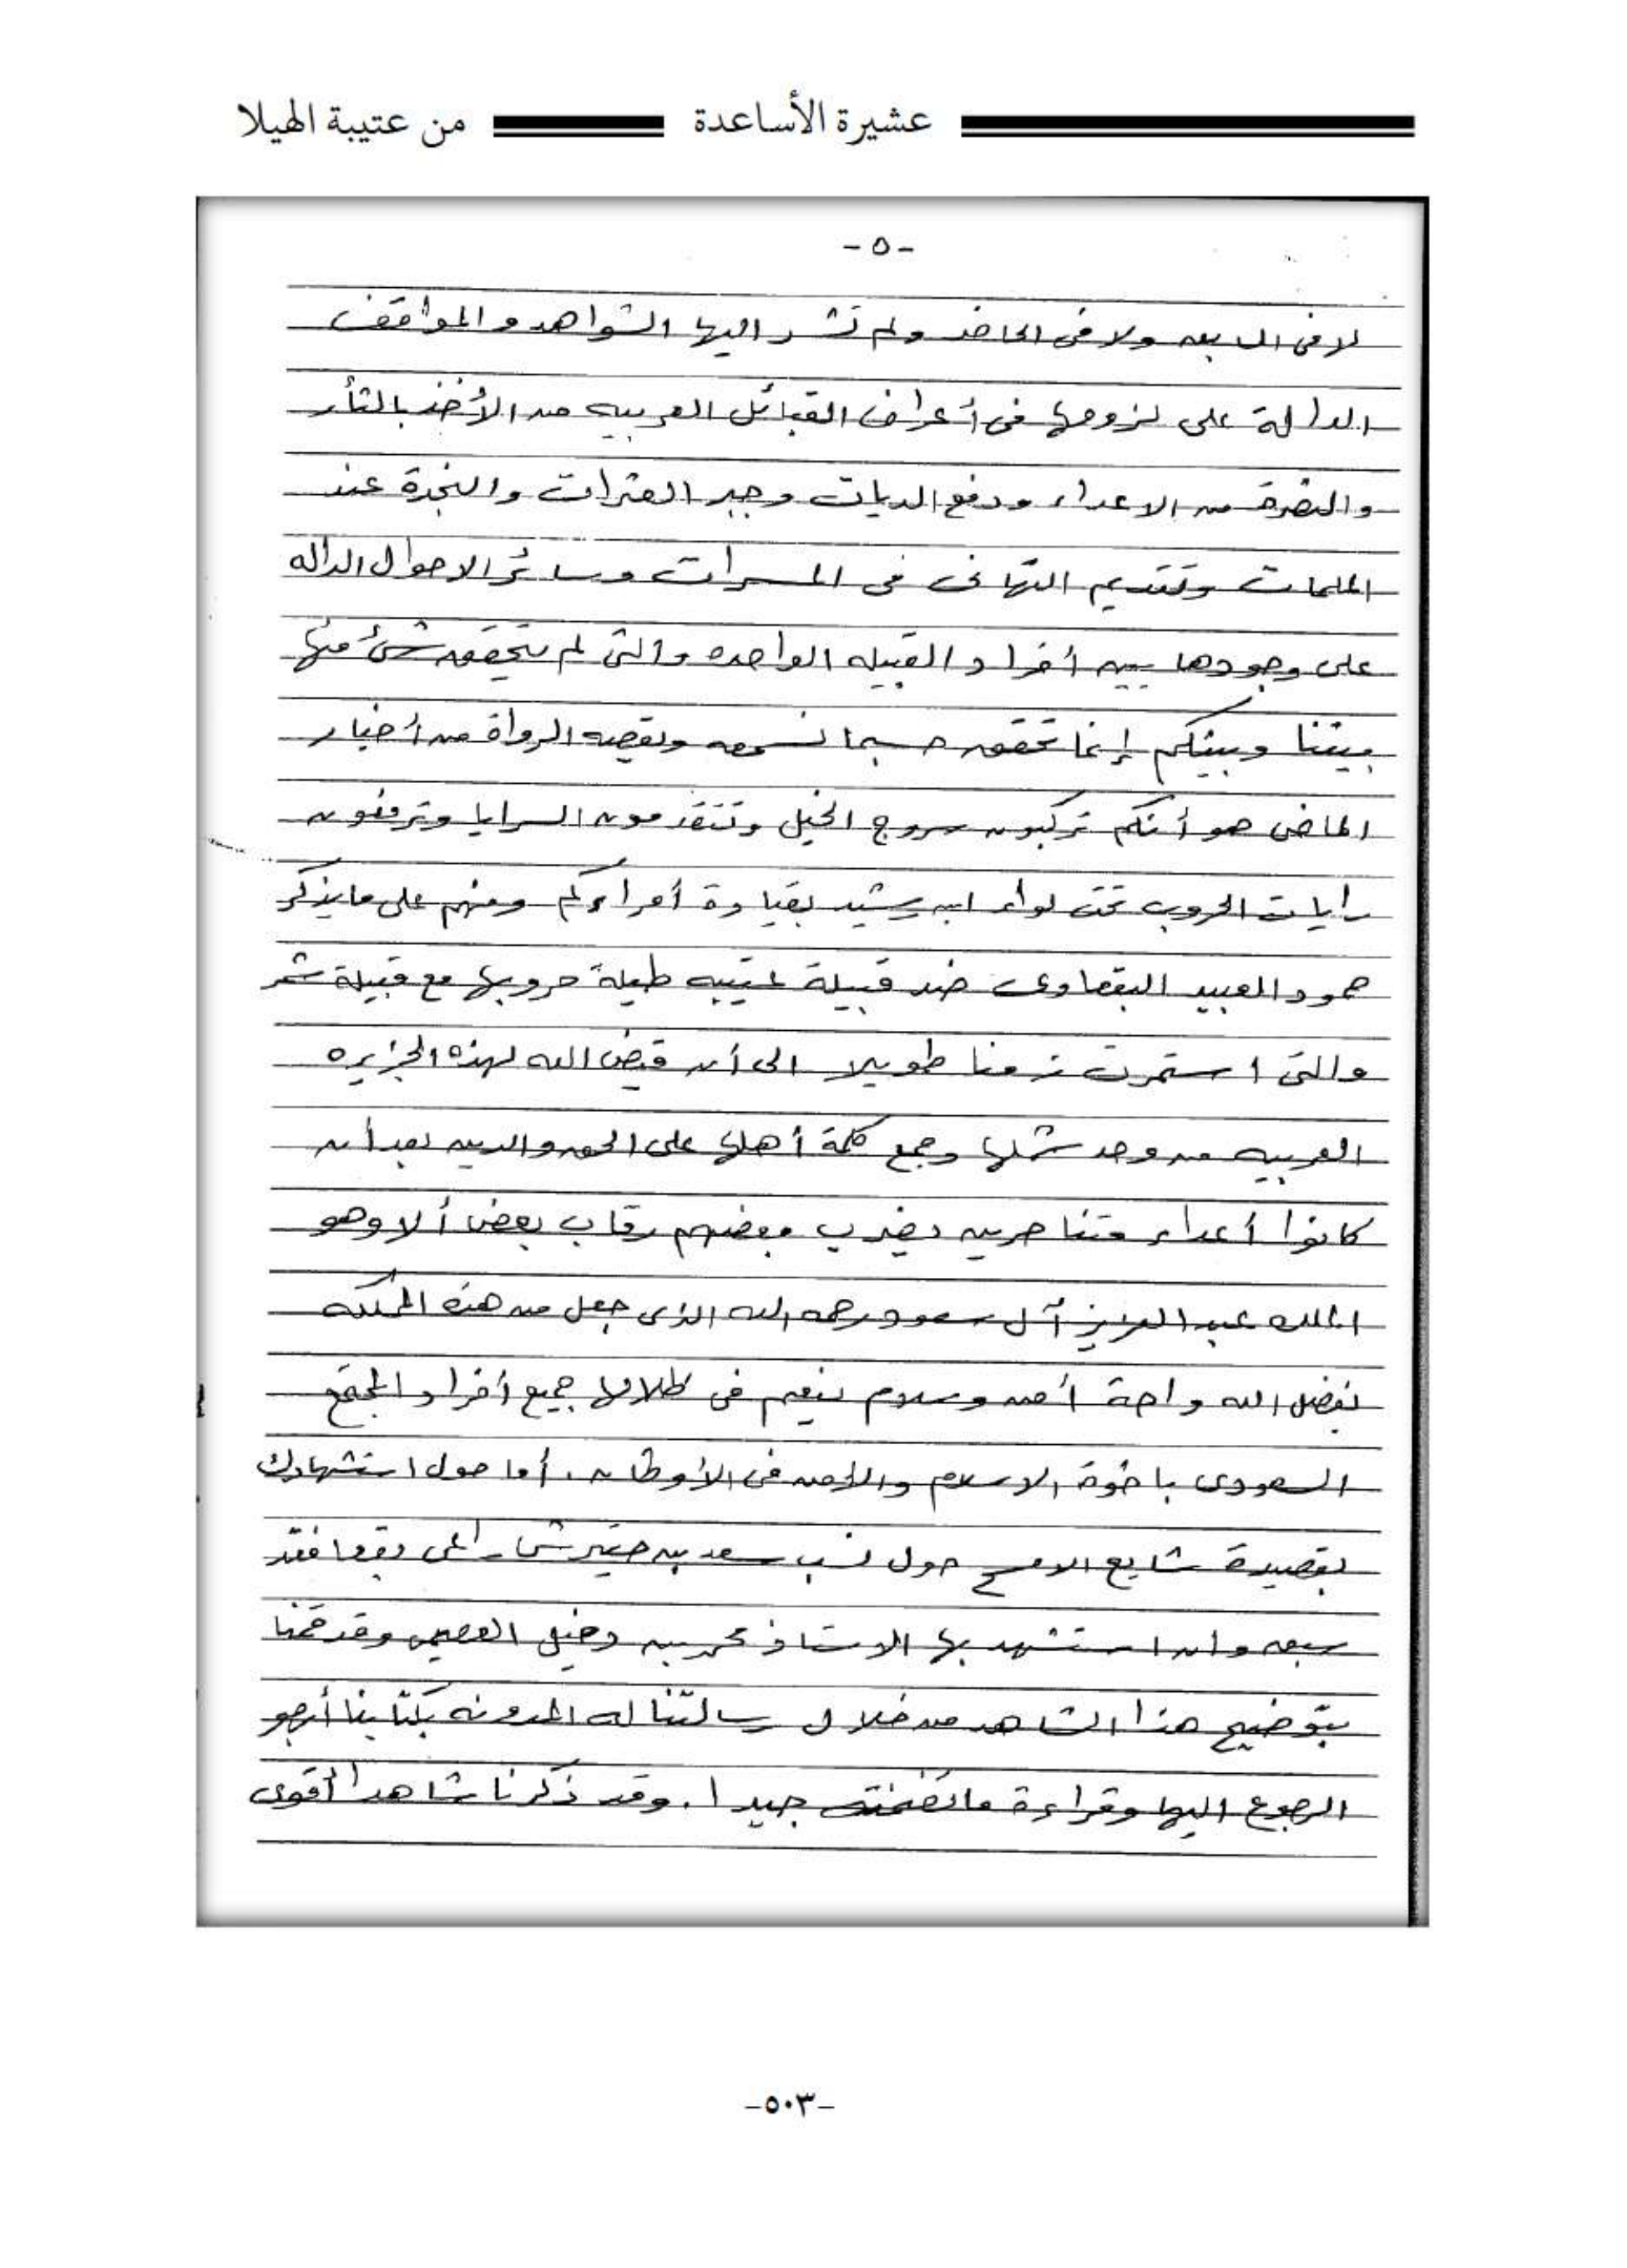 عشيرة الأساعدة من عتيبة الهيلا
-٥-
لا في السابق ولا في الحاضر ولم تشر اليها الشواهد والمواقف
الدالة على لزومها في أعراف القبائل العربيه من الأخذ بالثأر
والنصرة من الاعداء ودفع الديات وجبر العثرات والنجدة عند
الملمات وتقديم التهاني في المسرات وسائر الاحوال الداله
على وجودها بين أفراد القبيله الواحده والتي لم يتحقق شئ منها
بيننا وبينكم إنما تحقق حسبما نسمعه ويقصه الرواة من أخبار
الماضي هو أنكم تركبون سروج الخيل وتتقدمون السرايا وترفعون
رايات الحروب تحت لواء ابن رشيد بقيادة أمراءكم ومنهم على ما يذكر
حمود العبيد البقعاوي ضد قبيلة عتيبه طيلة حروبها مع قبيلة شمر
والتي استمرت زمنا طويلا الى أن قيض الله لهذه الجزيره
العربيه من وحد شملها وجمع كلمة أهلها على الحق والدين بعد أن
كانوا أعداء متناحرين يضرب بعضهم رقاب بعض ألا وهو
الملك عبد العزيز آل سعود رحمه الله الذي جعل من هذه المملكه
بفضل الله واحة أمن وسلام ينعم في ظلالها جميع أفراد المجتمع
السعودي باخوة الاسلام والأمن في الأوطان. أما حول استشهادك
بقصيدة شايع الامسح حول نسب سعد بن راعي بقعا فقد
سبق وان استشهد بها الاستاذ محمد بن دخيل العصيمي وقد قمنا
بتوضيح هذا الشاهد من خلال رسالتنا له المدونه بكتابنا أرجو
الرجوع اليها وقراءة ما تضمنته جيدا. وقد ذكرنا شاهدا أقوى
-٥٠٣-